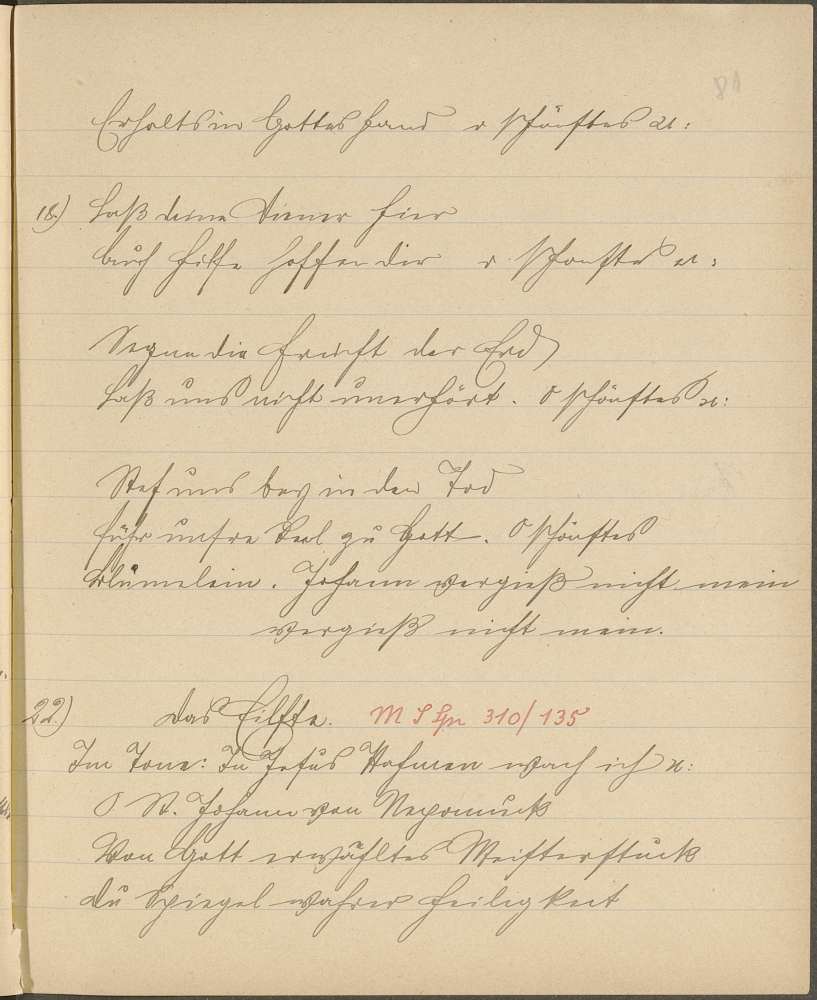 81
Erhalts in Gottes Hand o schönstes ꝛc:
18.) Laß deine Diener hier
Auch Hilfe hoffen dir o. Schönstes ꝛc:
Segne die Frücht der Erd
Laß uns nicht unerhört. O schönstes ꝛc:
Steh uns bey in den Tod
führ unsre Seel zu Gott. O schönstes
Blümelein. Johann vergieß nicht mein
vergieß nicht mein.
22.) Das Eilfte. M S Gr 310/135
Im Tone: In Jesus Nahmen wach ich ꝛc:
O St. Johann von Nepomuck
Von Gott erwähltes Meisterstück
du Spiegel wahrer Heiligkeit